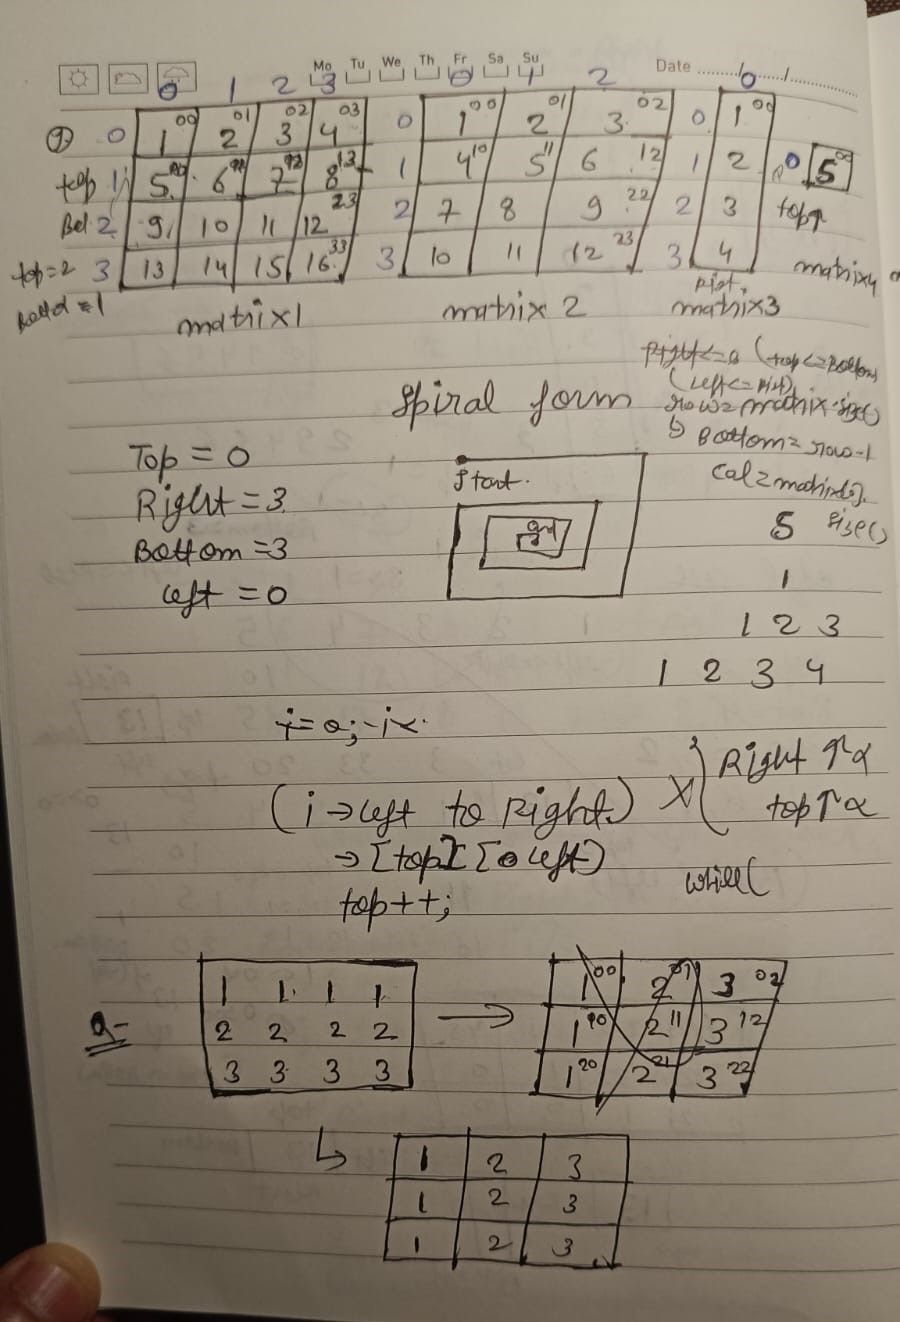 Mo Tu We Th Fr Sa Su Date
0 1 2 3 0 1 2 0
0 1 00 2 01 3 02 4 03 0 1 00 2 01 3 02 0 1 00
top 1 5 6 7 8 13 1 4 10 5 11 6 12 1 2 0 5 00
2 9 10 11 12 23 2 7 8 9 22 2 3 top↑
top=2 3 13 14 15 16 33 3 10 11 12 23 3 4 matrix4
=1 matrix1 matrix 2 matrix3
Right<=0 (top<=Bottom
(Left<=
Spiral form row=matrix.size()
Bottom=row-1
Top = 0 Start.
Right = 3
5 size()
Bottom =3
1
Left =0
1 2 3
1 2 3 4
Right ↑α
(i→left to Right) X top↑α
→[top][left]
while(
top++;
1 1 1 1 → 1 00 2 01 3 02
Q- 2 2 2 2 1 10 2 11 3 12
3 3 3 3 1 20 2 21 3 22
↳ 1 2 3
1 2 3
1 2 3